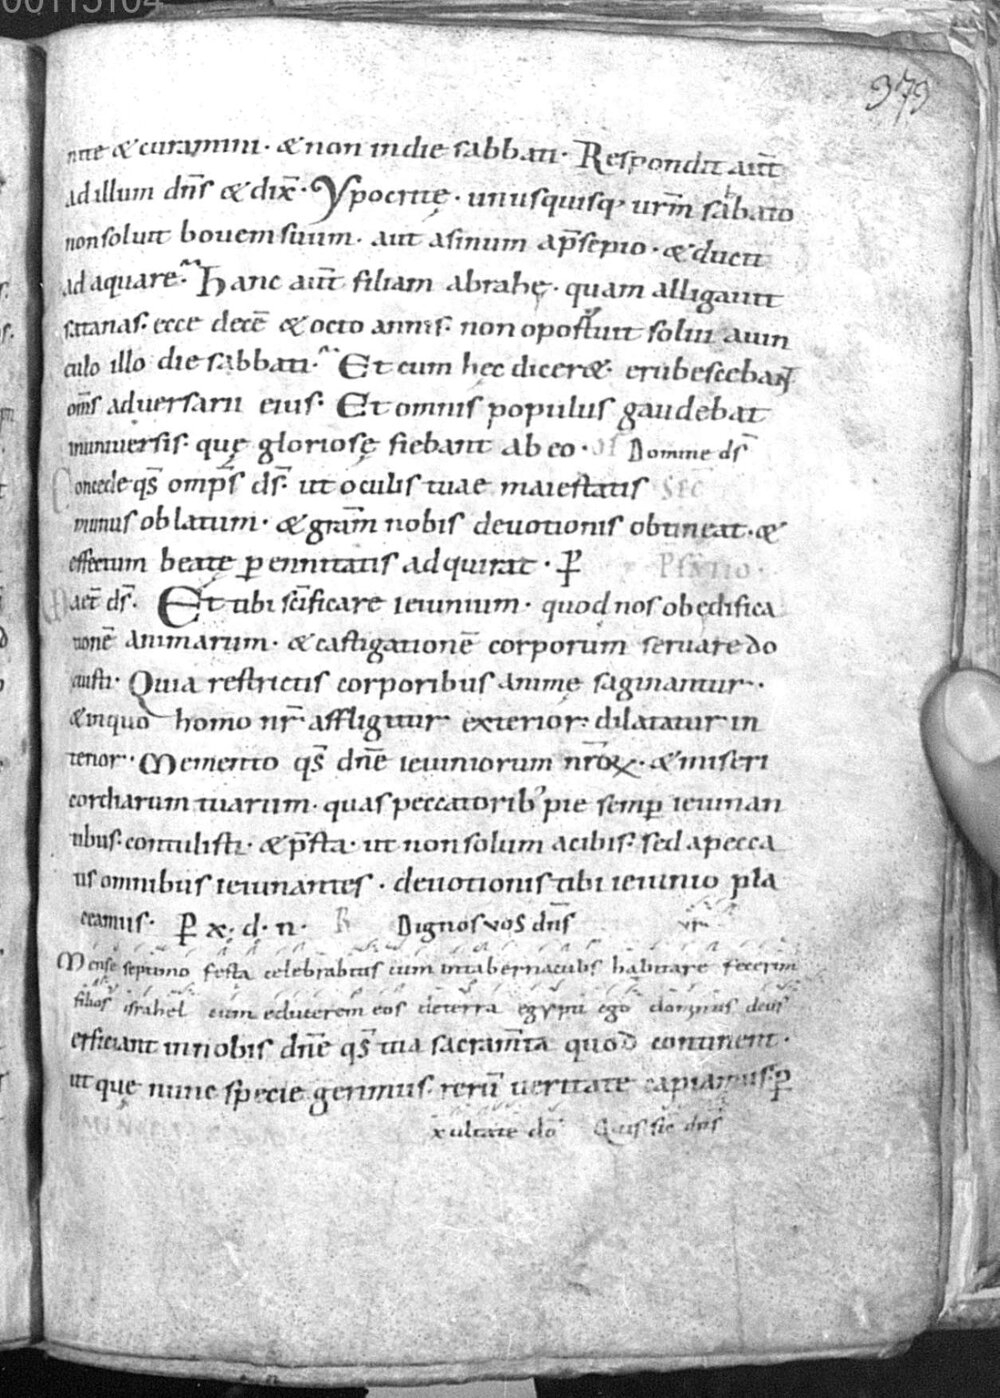 00115104
373
nite & curamini· & non indie sabbati· Respondit aut̄
ad illum dn̄s & dix̄· Ypocritę· unusquisq· urm̄ sabbato
non soluit bovem suum· aut asinum ap̄sepio· & ducit
ad aquare· Hanc aut̄ filiam abrahę· quam alligavit
satanas· ecce decē & octo annis· non oportuit solui auin
culo illo die sabbati· Et cum hec dicer&· erubescebant
om̄s adversarii eius· Et omnis populus gaudebat
inuniversis· quę gloriosę fiebant ab eo· Domine ds̄
Concede qs̄ omp̄s ds̄· ut oculis tuae maiestatis SEC
munus oblatum· & gram̄ nobis devotionis obtineat· &
effectum beatę pennitatis adquirat· P̱
aet̄ ds̄· Et tibi sc̄ificare ieiunium· quod nos ob ędifica
tionē animarum· & castigationē corporum servare do
cuisti· Quia restrictis corporibus animę saginantur·
& in quo homo nr̄ affligitur exterior· dilatatur in
terior· Memento qs̄ dn̄e ieiuniorum nr̄oꝝ· & miseri
cordiarum tuarum· quas peccatorib; pie semp̱ ieiunan
tibus· contulisti· & p̄sta· ut non solum acibis· sed apecca
tis omnibus ieiunantes· devotionis tibi ieiunio pla
ceamus· P̱ x· d· n· R Dignos vos dn̄s
Mense septimo festa celebrabitis cum intabernaculis habitare fecerim
filios israhel cum educerem eos deterra egypti ego dominus deus
efficiant innobis dn̄e qs̄ tua sacram̄ta quod continent·
ut quę nunc specie gerimus· rerū veritate capiamus· p̱
xultate dō Quis sic dn̄s